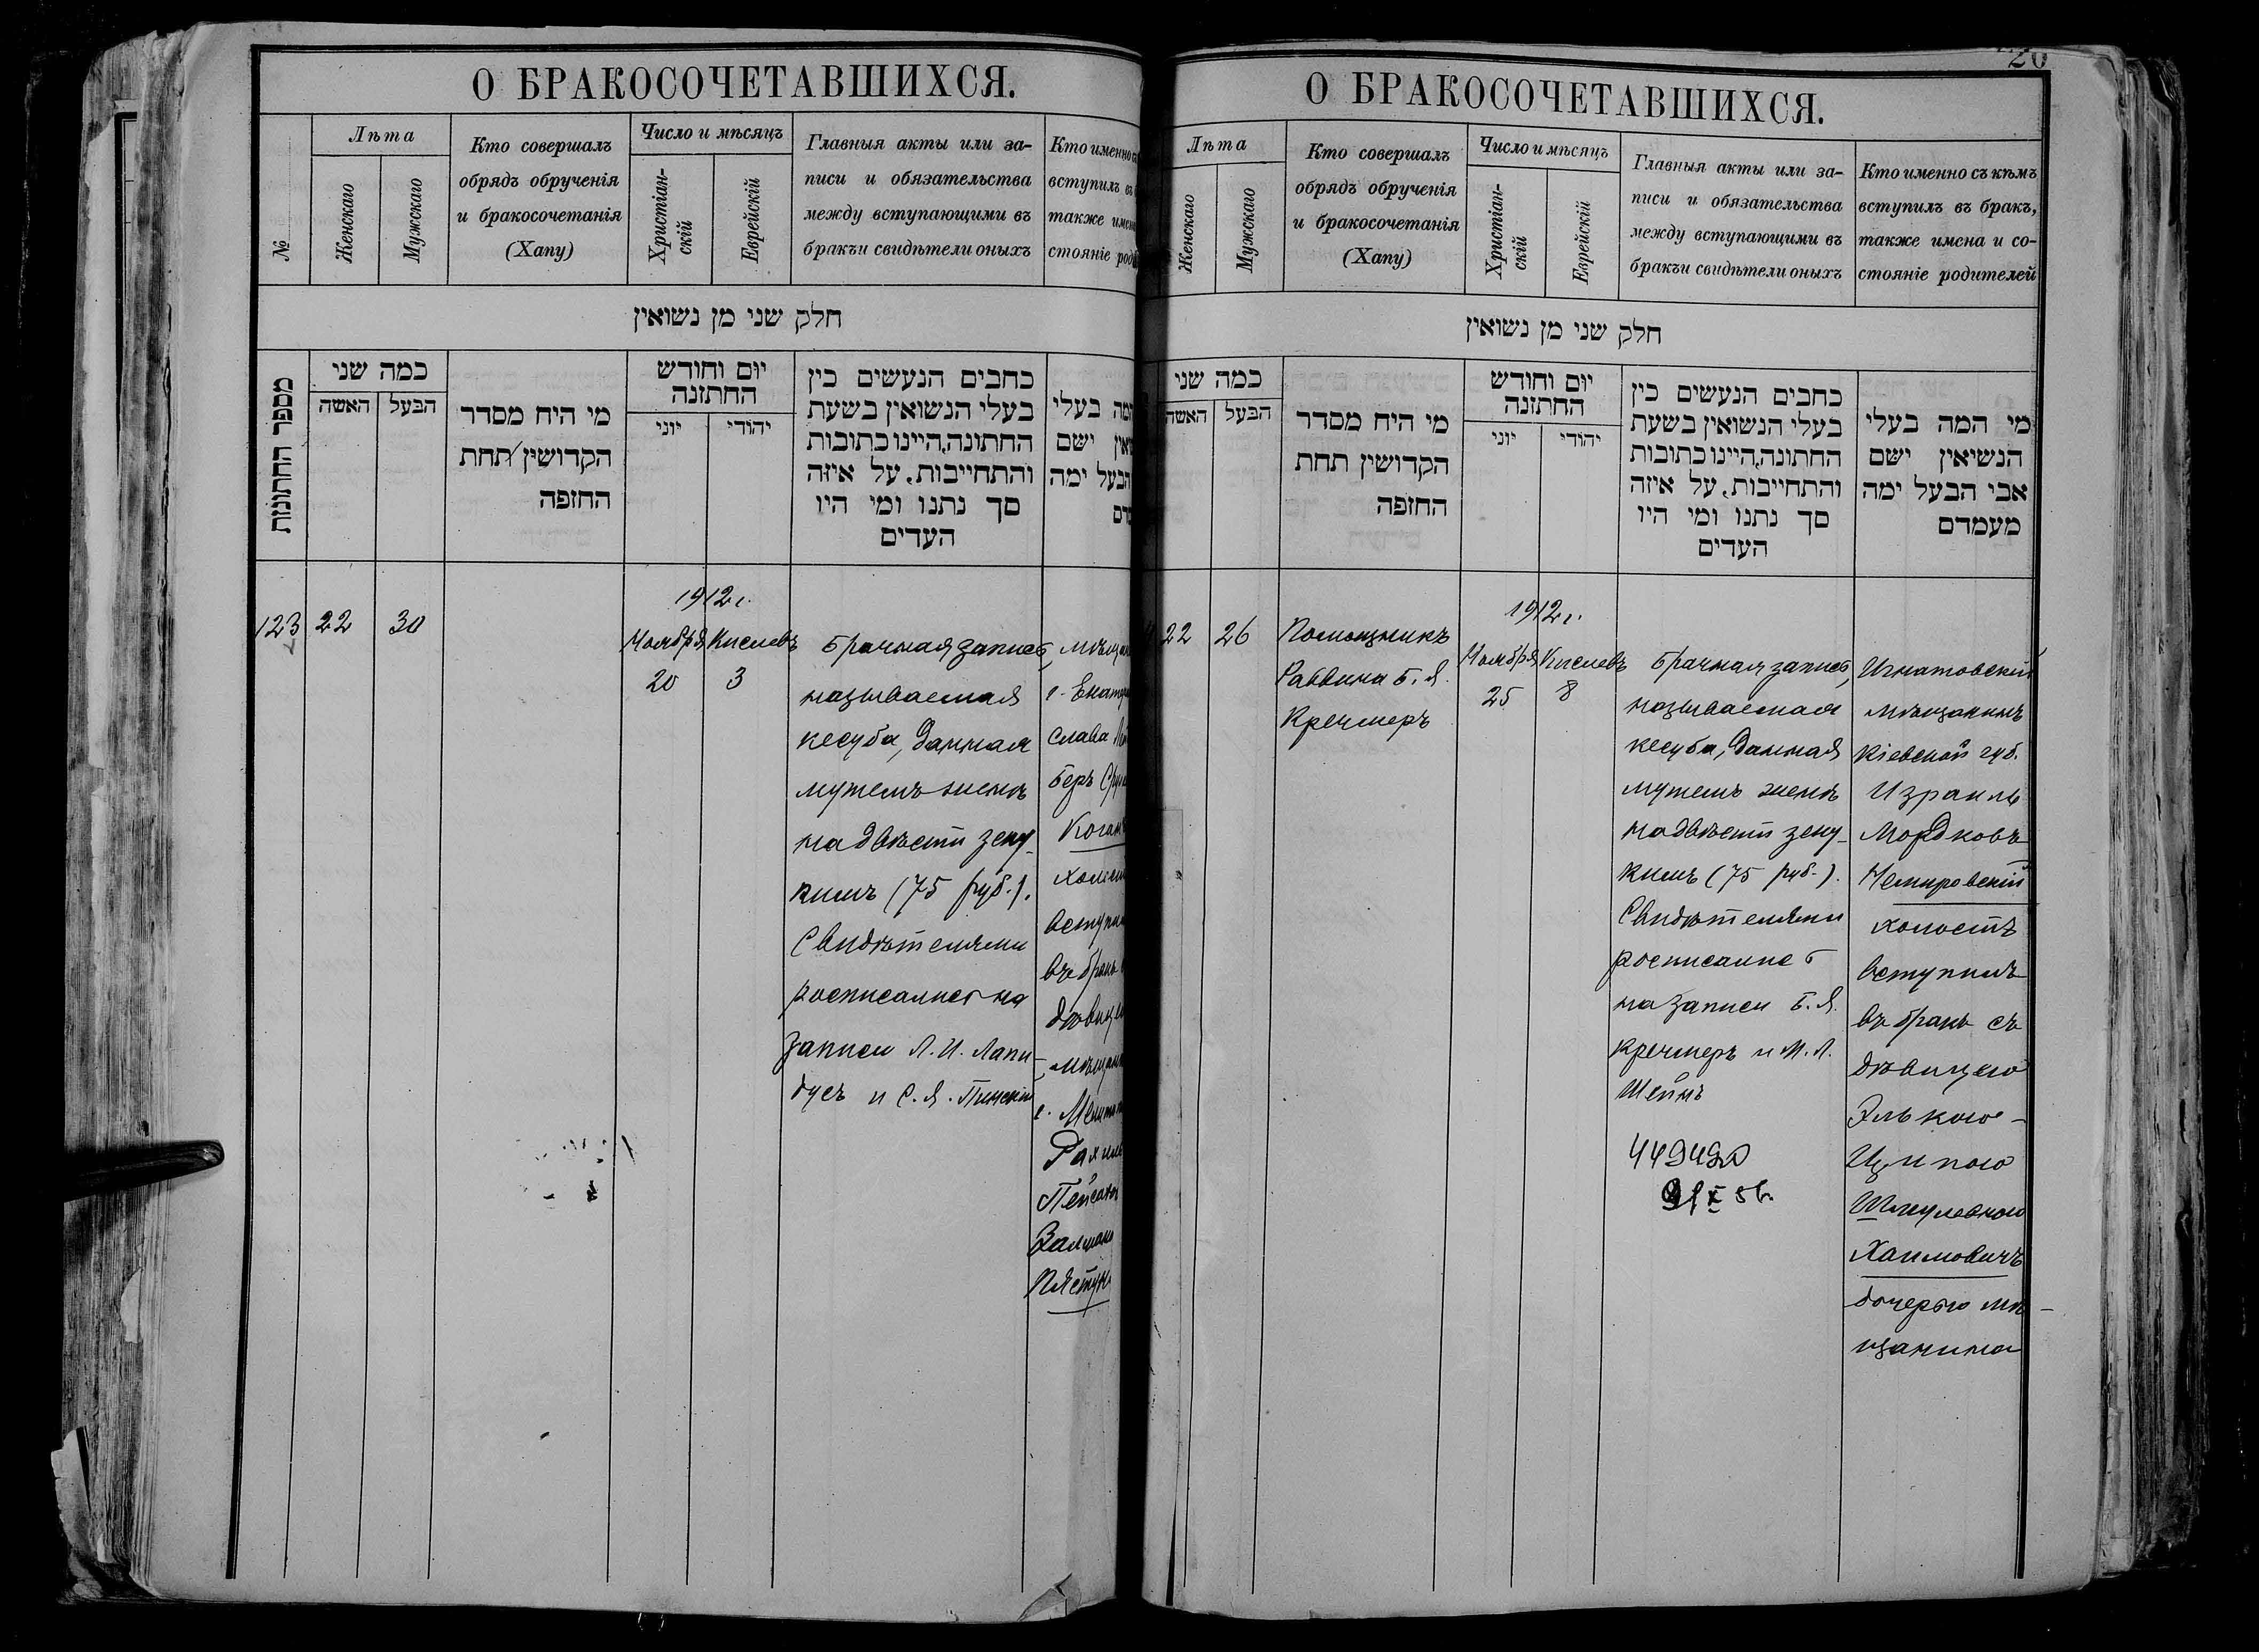 О БРАКОСОЧЕТАВШИХСЯ.
№
Лѣта
Женскаго
Мужскаго
Кто совершалъ
обрядъ обрученія
и бракосочетанія
(Хапу)
Число и мѣсяцъ
Христіан-
скій
Еврейскій
Главныя акты или за-
писи и обязательства
между вступающими въ
бракъи свидѣтели оныхъ
Кто именно
вступилъ
также
стояніе
חלק שני מן נשואין
מספר החתונות
כמה שני
האשה
הבעל
מי היח מסדר
הקדושין תחת
החזפה
יום וחודש
החתזנה
יוני
יהודי
כחבים הנעשים כין
בעלי הנשואין בשעת
החתונה,היינו כתובות
והתחייבות. על איזה
סך נתנו ומי היו
העדים
בעלי
ישם
הבעל ימה
123
22
30
1912 г.
Ноября
20
Кислевъ
3
Брачная запись,
называемая
кесуба, данная
мужемъ женѣ
на двѣсти зеку-
кимъ (75 руб.).
Свидѣтелями
росписались на
записи Л. И. Лапи-
дусъ и С. Я. Пинскій
г.
слава
Беръ
Коганъ
въ бракъ
г.
20
О БРАКОСОЧЕТАВШИХСЯ.
Лѣта
Женскаго
Мужскаго
Кто совершалъ
обрядъ обрученія
и бракосочетанія
(Хапу)
Число и мѣсяцъ
Христіан-
скій
Еврейскій
Главныя акты или за-
писи и обязательства
между вступающими въ
бракъи свидѣтели оныхъ
Кто именно съ кѣмъ
вступилъ въ бракъ,
также имена и со-
стояніе родителей
חלק שני מן נשואין
כמה שני
האשה
הבעל
מי היח מסדר
הקדושין תחת
החזפה
יום וחודש
החתזנה
יוני
יהודי
כחבים הנעשים כין
בעלי הנשואין בשעת
החתונה,היינו כתובות
והתחייבות. על איזה
סך נתנו ומי היו
העדים
מי המה בעלי
הנשיאין ישם
אבי הבעל ימה
מעמדם
22
26
Помощникъ
Раввина Б. Я.
Кречмеръ
1912 г.
Ноября
25
Кислевъ
8
Брачная запись,
называемая
кесуба, данная
мужемъ женѣ
на двѣсти зеку-
кимъ (75 руб.).
Свидѣтелями
росписались
на записи Б. Я.
Кречмеръ и М. Л.
Шейнъ
Игнатовскій
мѣщанинъ
Кіевской губ.
Израиль
Мордковъ
Немировскій
холостъ
вступилъ
въ бракъ съ
дѣвицею
Элькою-
Ципою
Шмулевною
Хаимовичъ
дочерью мѣ-
щанина